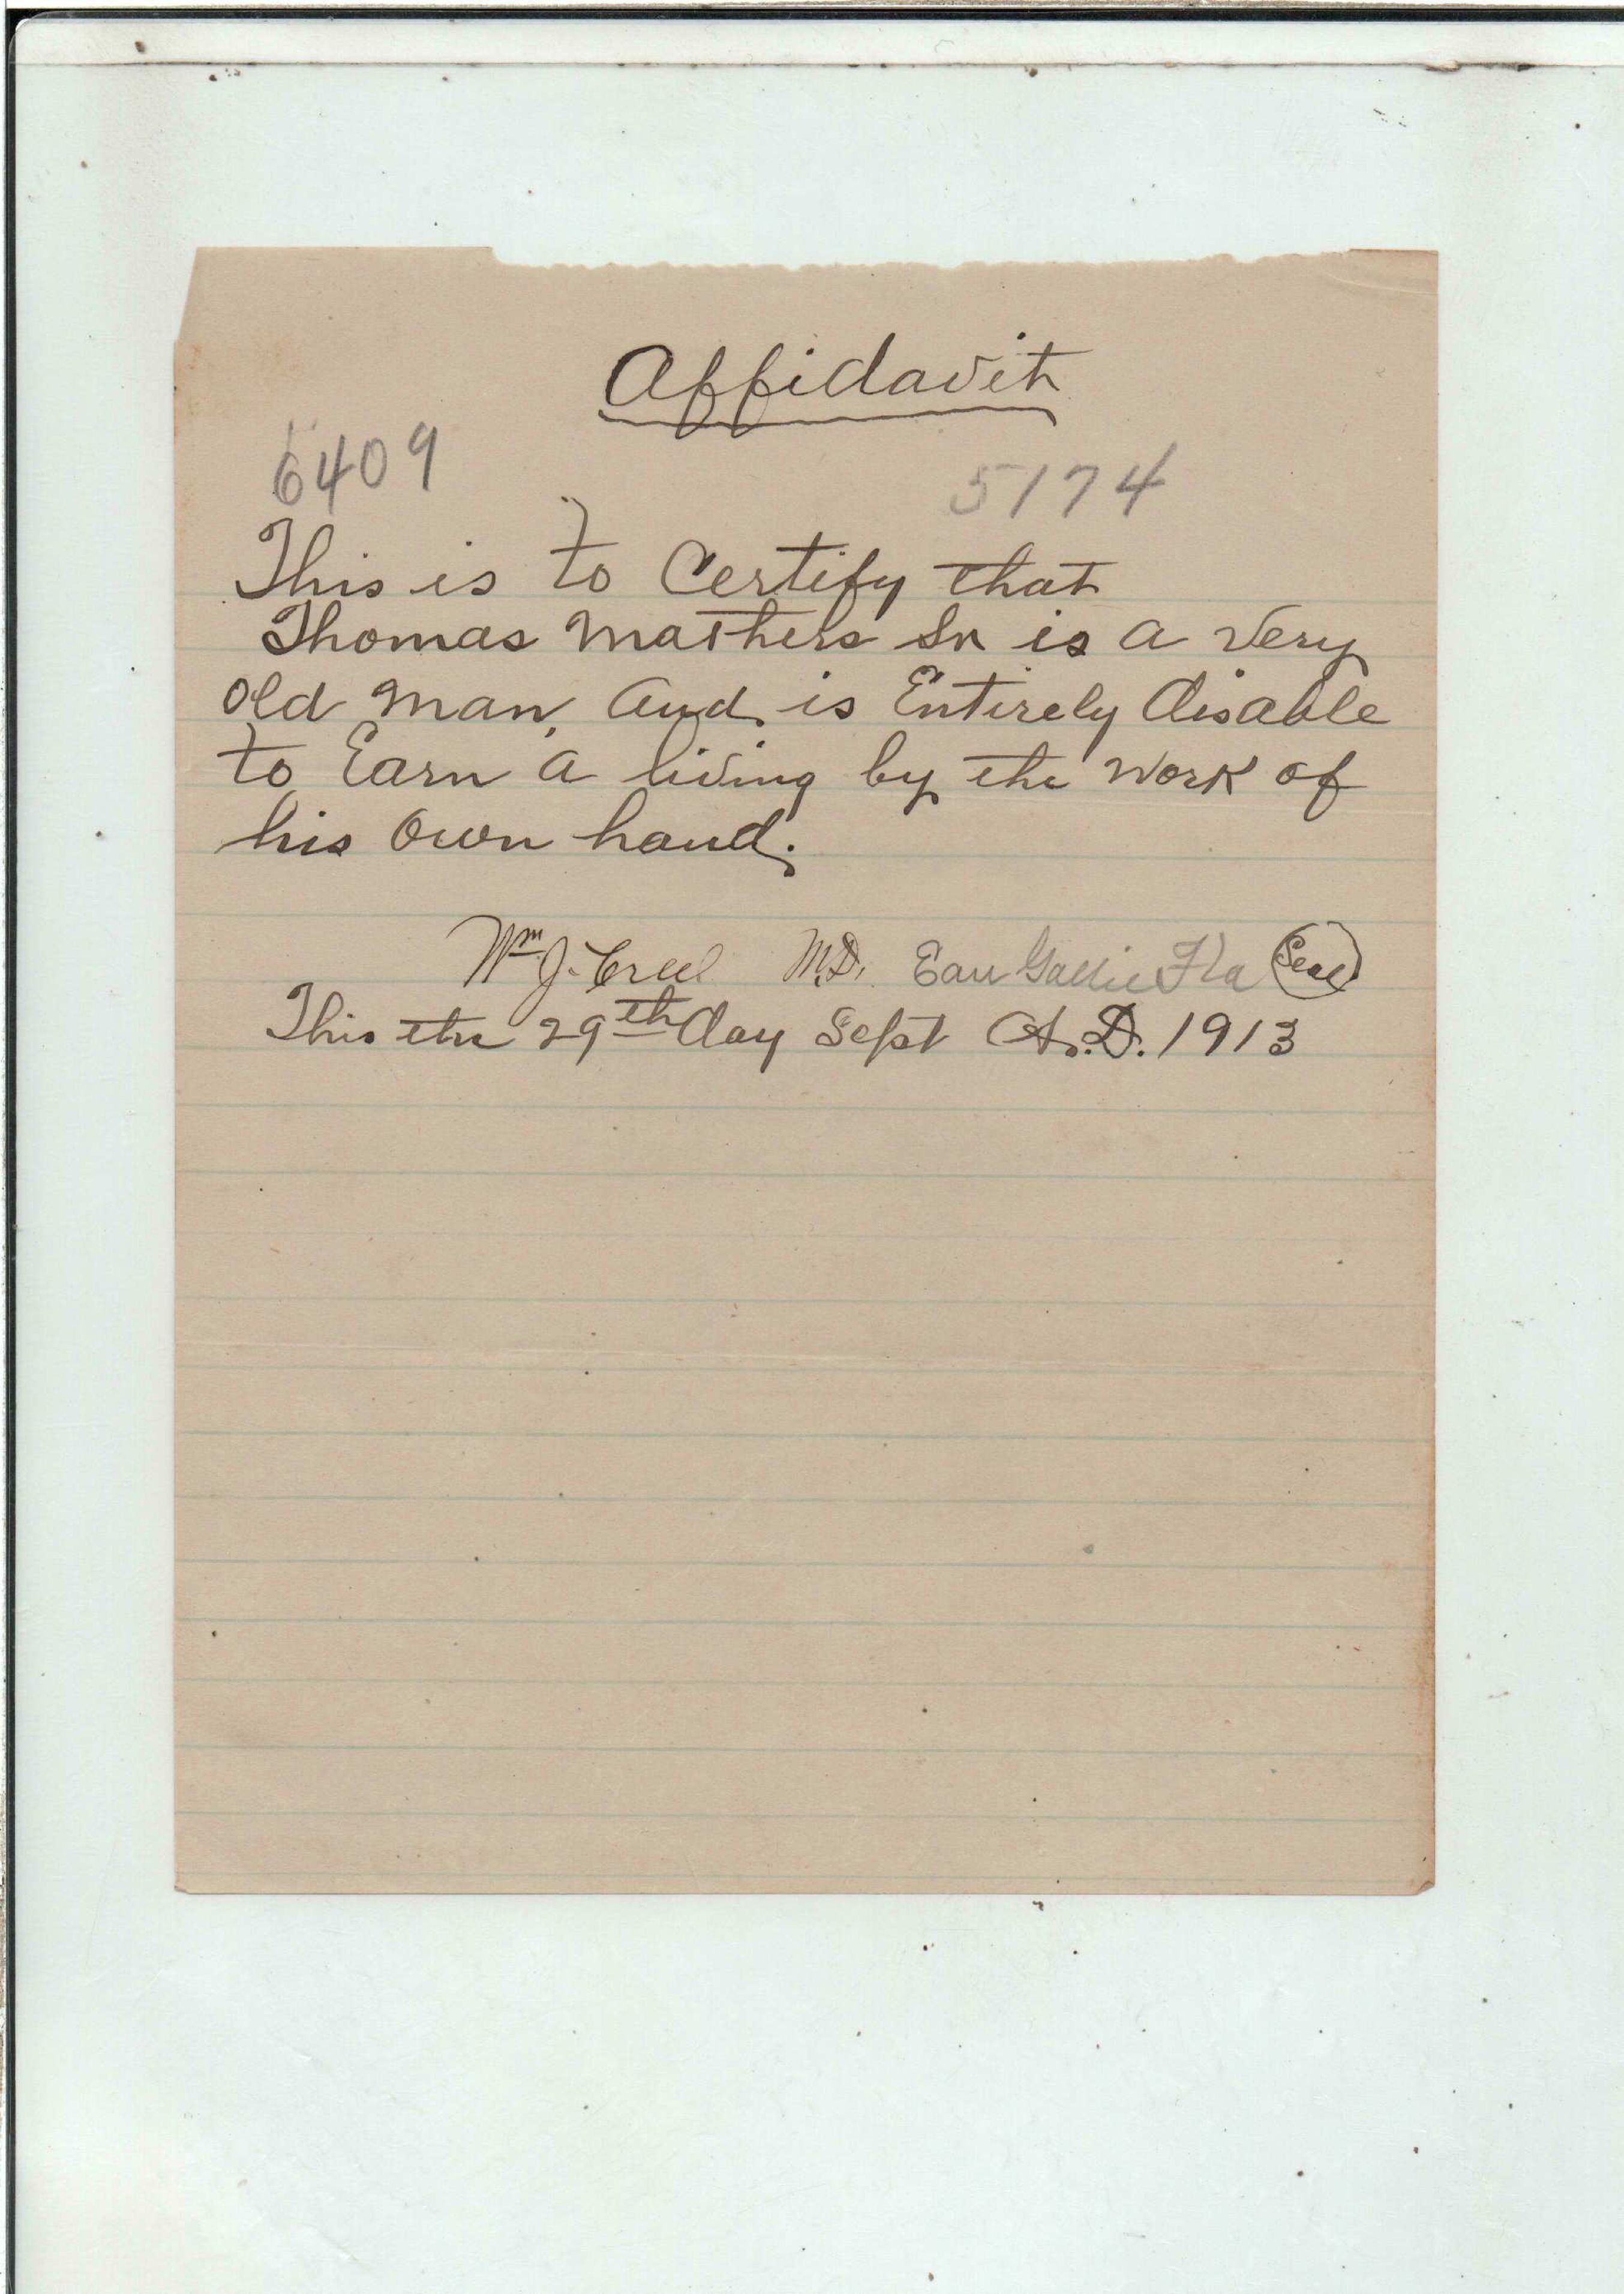 Affidavit
6409 5174
This is to Certify that
Thomas Mathers Sr is a Very
old man, and is Entirely disable
to Earn a living by the work of
his own hand.
Wm J. Creel M.D. Eau Gallie Fla Seal
This the 29th day Sept A.D. 1913